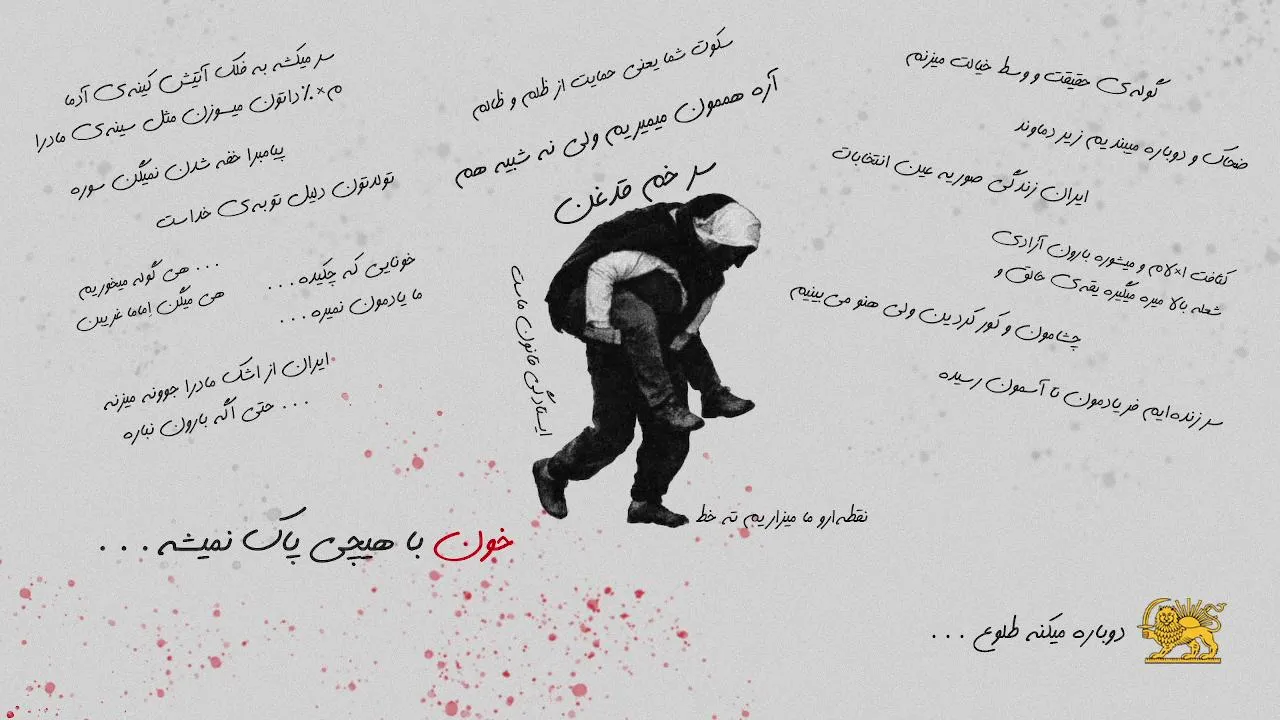 گوله‌ی حقیقت و وسط خیالت میزنم
ضحاک و دوباره میبندیم زیر دماوند
ایران زندگی صوریه عین انتخابات
کثافت ا×لام و میشوره بارون آزادی
شعله بالا میره میگیره یقه‌ی خالق و
چشامون و کور کردین ولی هنو می‌بینیم
سر زنده‌ایم فریادمون تا آسمون رسیده
سکوت شما یعنی حمایت از ظلم و ظالم
آره هممون میمیریم ولی نه شبیه هم
سر خم قدغن
ایستادگی قانون ماست
نقطه‌ارو ما میزاریم ته خط
سر میکشه به فلک آتیش کینه‌ی آدما
م×٪داتون میسوزن مثل سینه‌ی مادرا
پیامبرا خفه شدن نمیگن سوره
تولدتون دلیل توبه‌ی خداست
خونایی که چکیده . . .
ما یادمون نمیره . . .
. . . هی گوله میخوریم
هی میگن اماما غریبن
ایران از اشک مادرا جوونه میزنه
. . . حتی اگه بارون نباره
خون با هیچی پاک نمیشه . . .
دوباره میکنه طلوع . . .